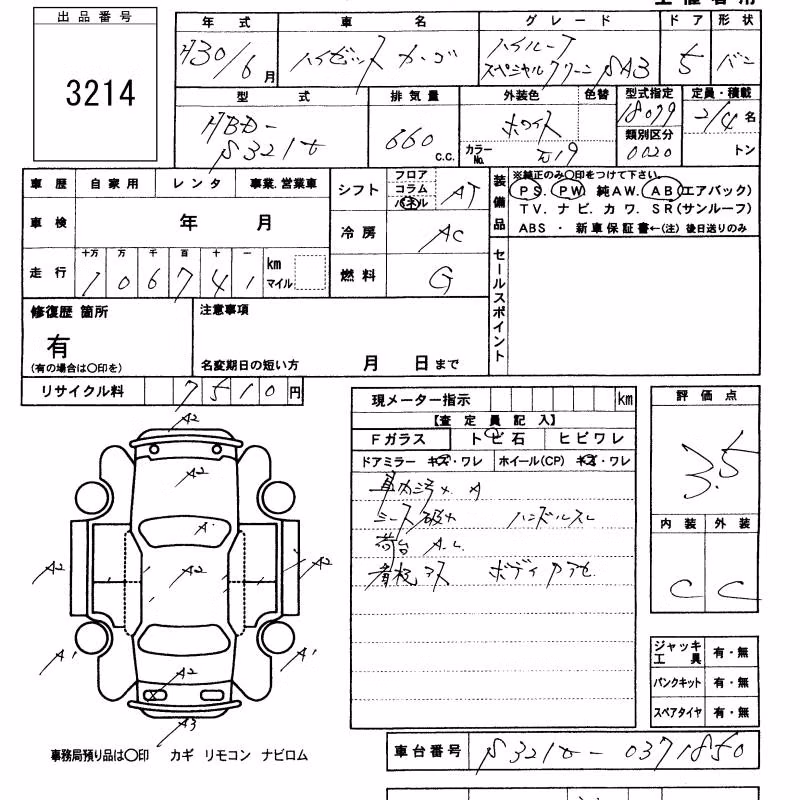 出品番号
3214
年式 車名 グレード ドア 形状
H30/6月 ハイゼット カーゴ ハイルーフ 5 バン
スペシャルクリーン SAⅢ
型式 排気量 外装色 色替 型式指定 定員・積載
HBD- 660 c.c. ホワイト 18079 2/4 名
S321V カラーNo. W19 類別区分 0020 トン
車歴 自家用 レンタ 事業.営業車
シフト フロア コラム パネル AT
装備品 ※純正のみ〇印をつけて下さい。
PS. PW 純AW. AB(エアバック)
TV. ナビ. カワ. SR(サンルーフ)
ABS ・ 新車保証書←(注) 後日送りのみ
車検 年 月
冷房 AC
走行 十万 万 千 百 十 一 km マイル
106741
燃料 G
セールスポイント
修復歴 箇所
有
(有の場合は〇印を)
注意事項
名変期日の短い方 月 日まで
リサイクル料 7510円
現メーター指示 km
【査定員記入】
Fガラス トビ石 ヒビワレ
ドアミラー キズ・ワレ ホイール(CP) キズ・ワレ
車内汚× A
シート破× ハンドルスレ
荷台 A.L
看板アス ボディクアセ
評価点
3.5
内装 外装
C C
A2
A2
A'
A2 A2 A2
A' A2 A'
A3
ジャッキ工具 有・無
パンクキット 有・無
スペアタイヤ 有・無
事務局預り品は〇印 カギ リモコン ナビロム
車台番号 S321V-0371850